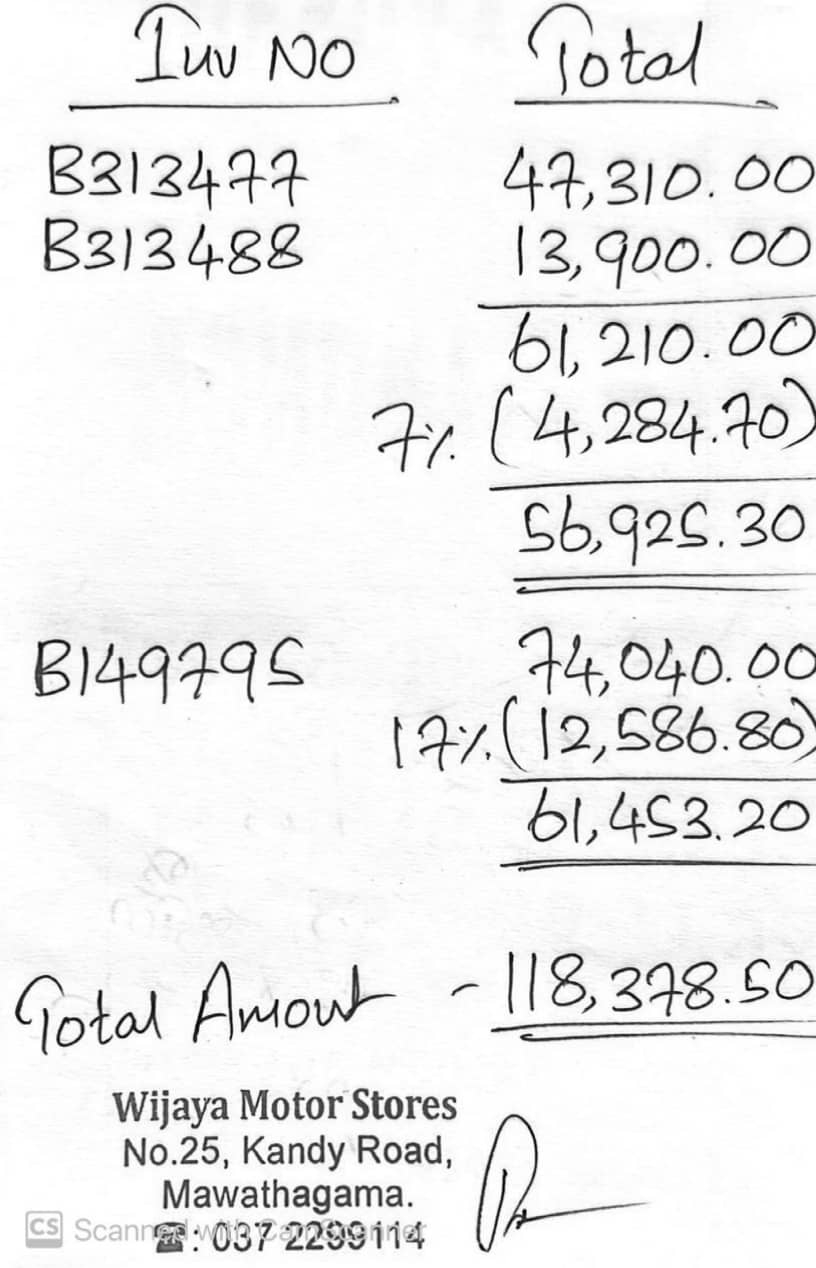 Inv NO Total
B313477 47,310.00
B313488 13,900.00
61,210.00
7%. (4,284.70)
56,925.30
B149795 74,040.00
17%. (12,586.80)
61,453.20
Total Amout - 118,378.50
Wijaya Motor Stores
No.25, Kandy Road,
Mawathagama.
☎: 037 2299114
CS Scanned with CamScanner